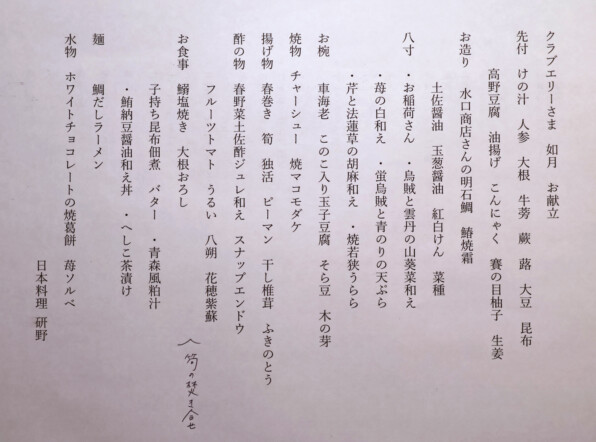 クラブエリーさま　如月　お献立
先付　けの汁　人参　大根　牛蒡　蕨　蕗　大豆　昆布
高野豆腐　油揚げ　こんにゃく　賽の目柚子　生姜
お造り　水口商店さんの明石鯛　鰆焼霜
土佐醤油　玉葱醤油　紅白けん　菜種
八寸　・お稲荷さん　・烏賊と雲丹の山葵菜和え
・苺の白和え　・蛍烏賊と青のりの天ぷら
・芹と法蓮草の胡麻和え　・焼若狭うらら
お椀　車海老　このこ入り玉子豆腐　そら豆　木の芽
焼物　チャーシュー　焼マコモダケ
揚げ物　春巻き　筍　独活　ピーマン　干し椎茸　ふきのとう
酢の物　春野菜土佐酢ジュレ和え　スナップエンドウ
フルーツトマト　うるい　八朔　花穂紫蘇
筍の炊き合せ
お食事　鰯塩焼き　大根おろし
子持ち昆布佃煮　バター　・青森風粕汁
・鮪納豆醤油和え丼　・へしこ茶漬け
麺　鯛だしラーメン
水物　ホワイトチョコレートの焼葛餅　苺ソルベ
日本料理　研野